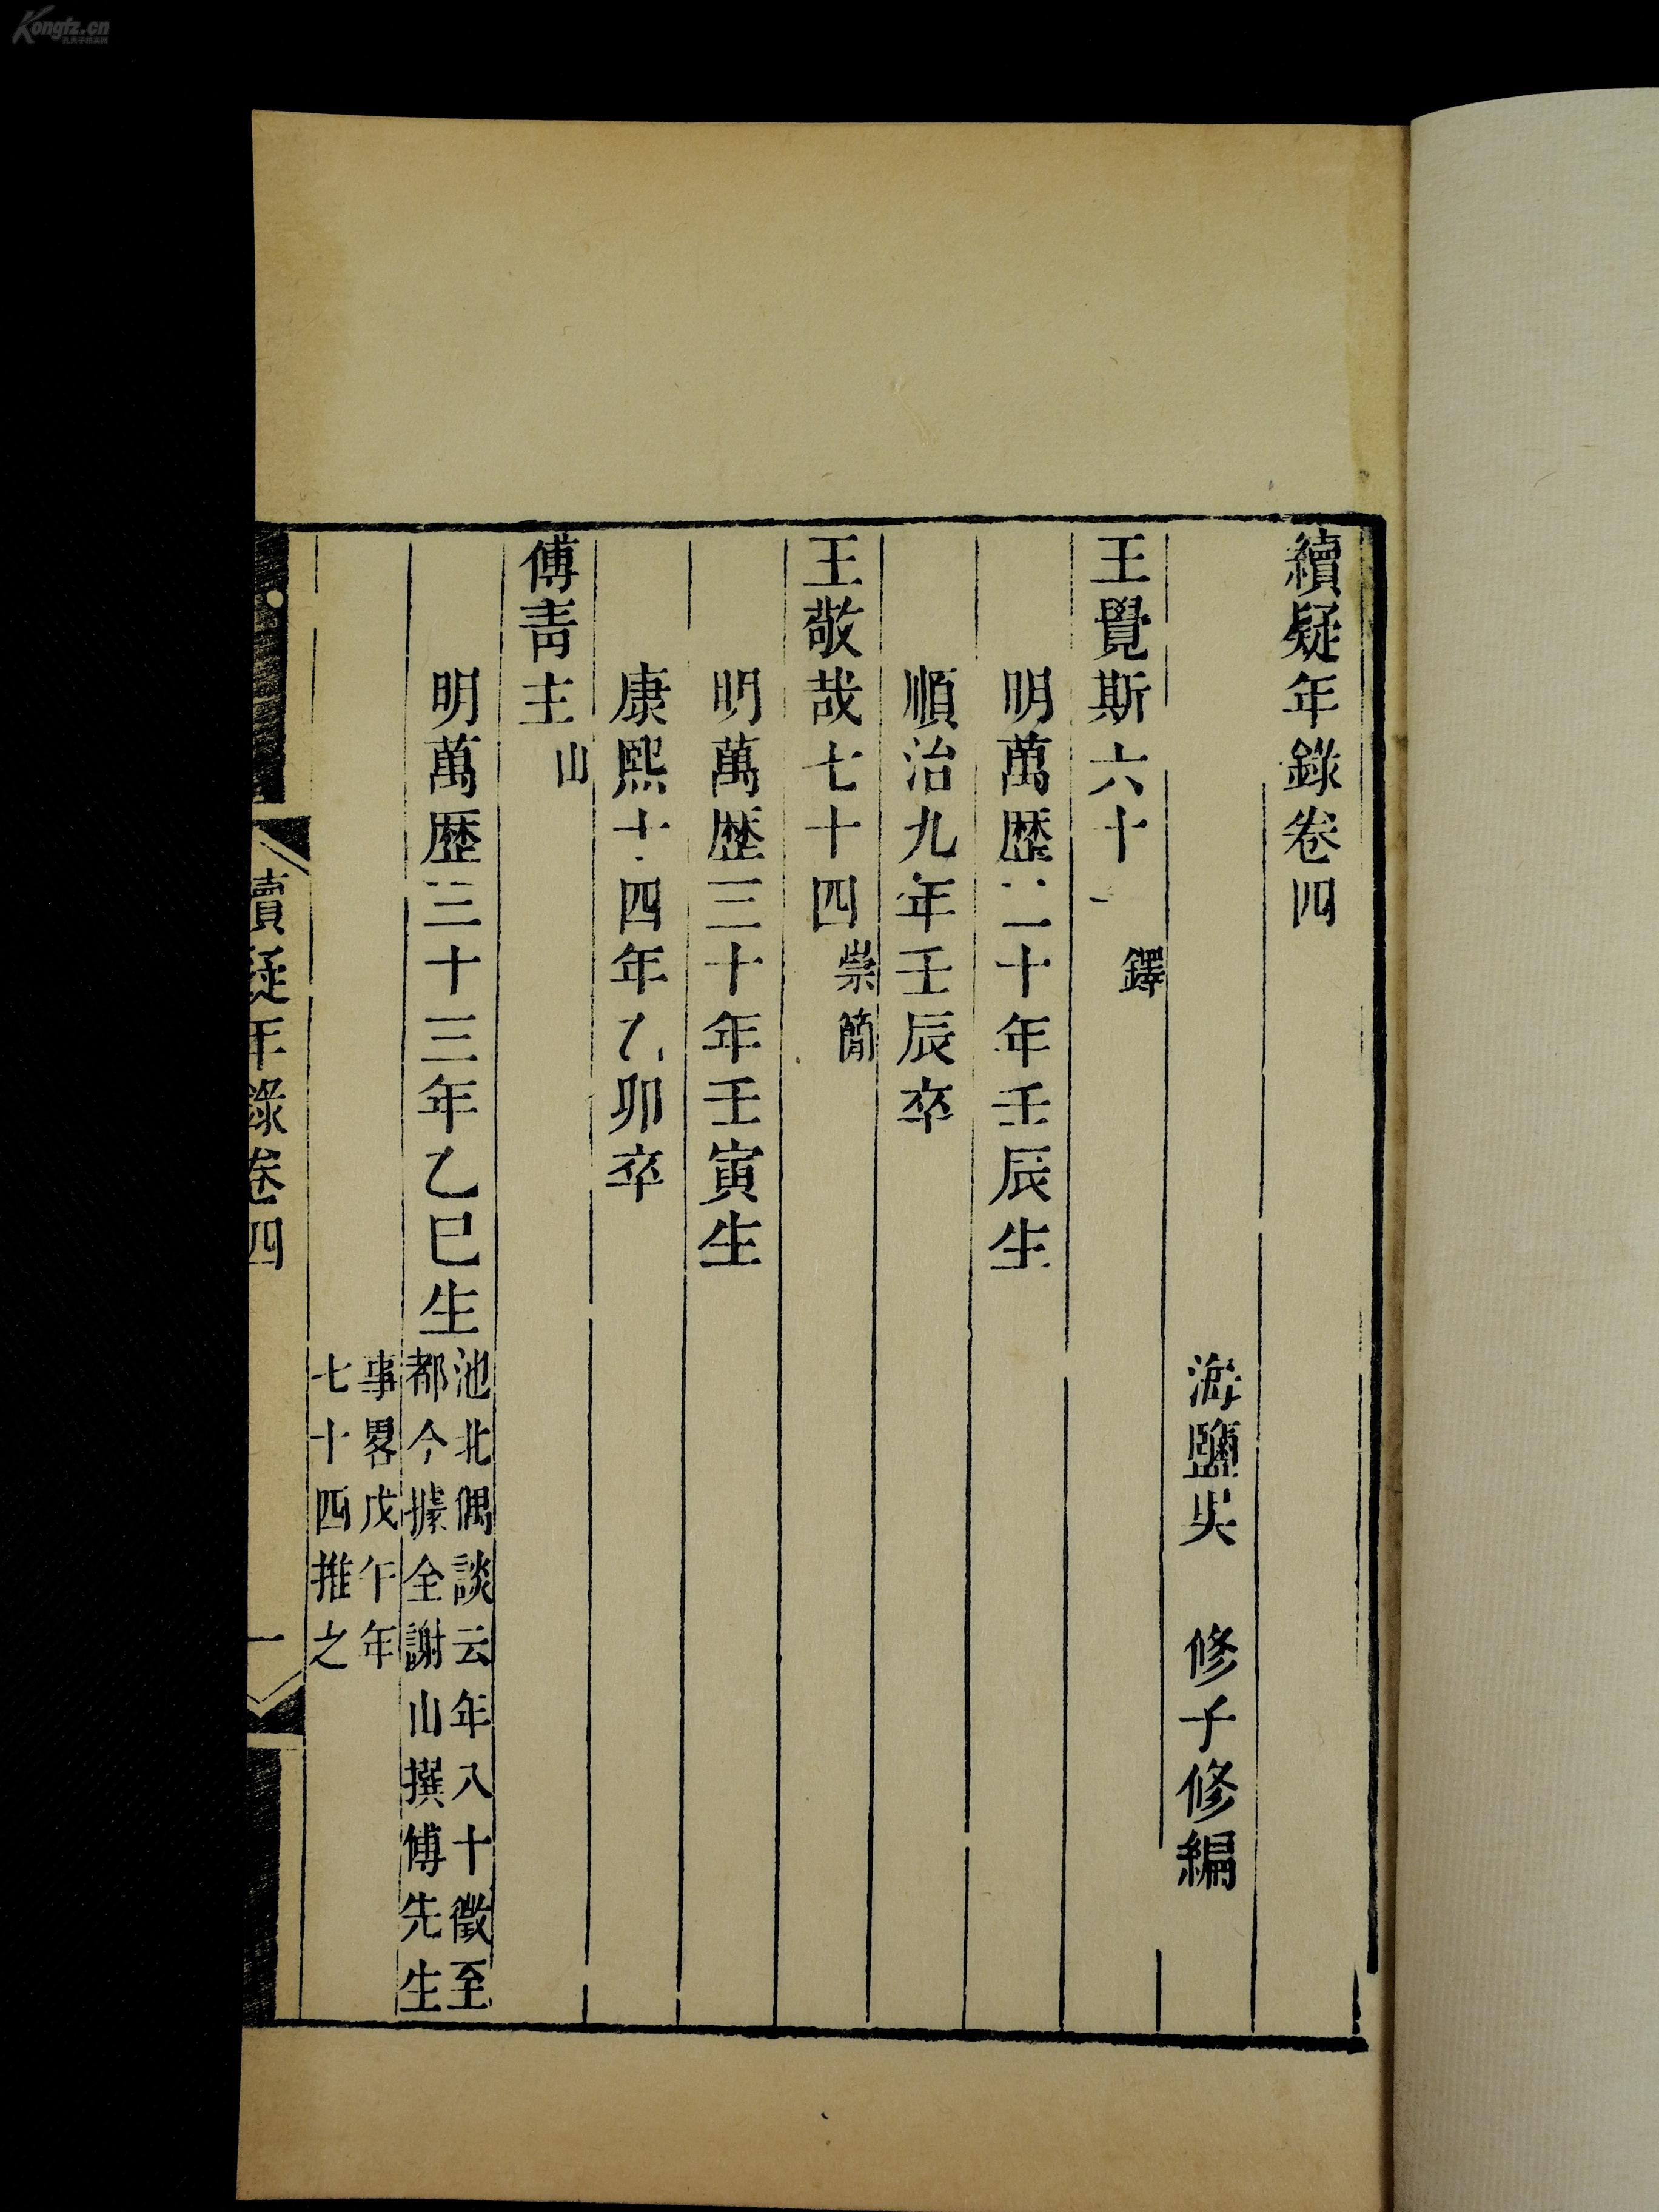 續疑年錄卷四
海鹽吳　修子修編
王覺斯六十一鐸
明萬歷二十年壬辰生
順治九年壬辰卒
王敬哉七十四崇簡
明萬歷三十年壬寅生
康熙十四年乙卯卒
傅青主山
明萬歷三十三年乙巳生
池北偶談云年八十徵至
都今據全謝山撰傅先生
事畧戊午年
七十四推之
續疑年錄卷四
一
Kongfz.cn